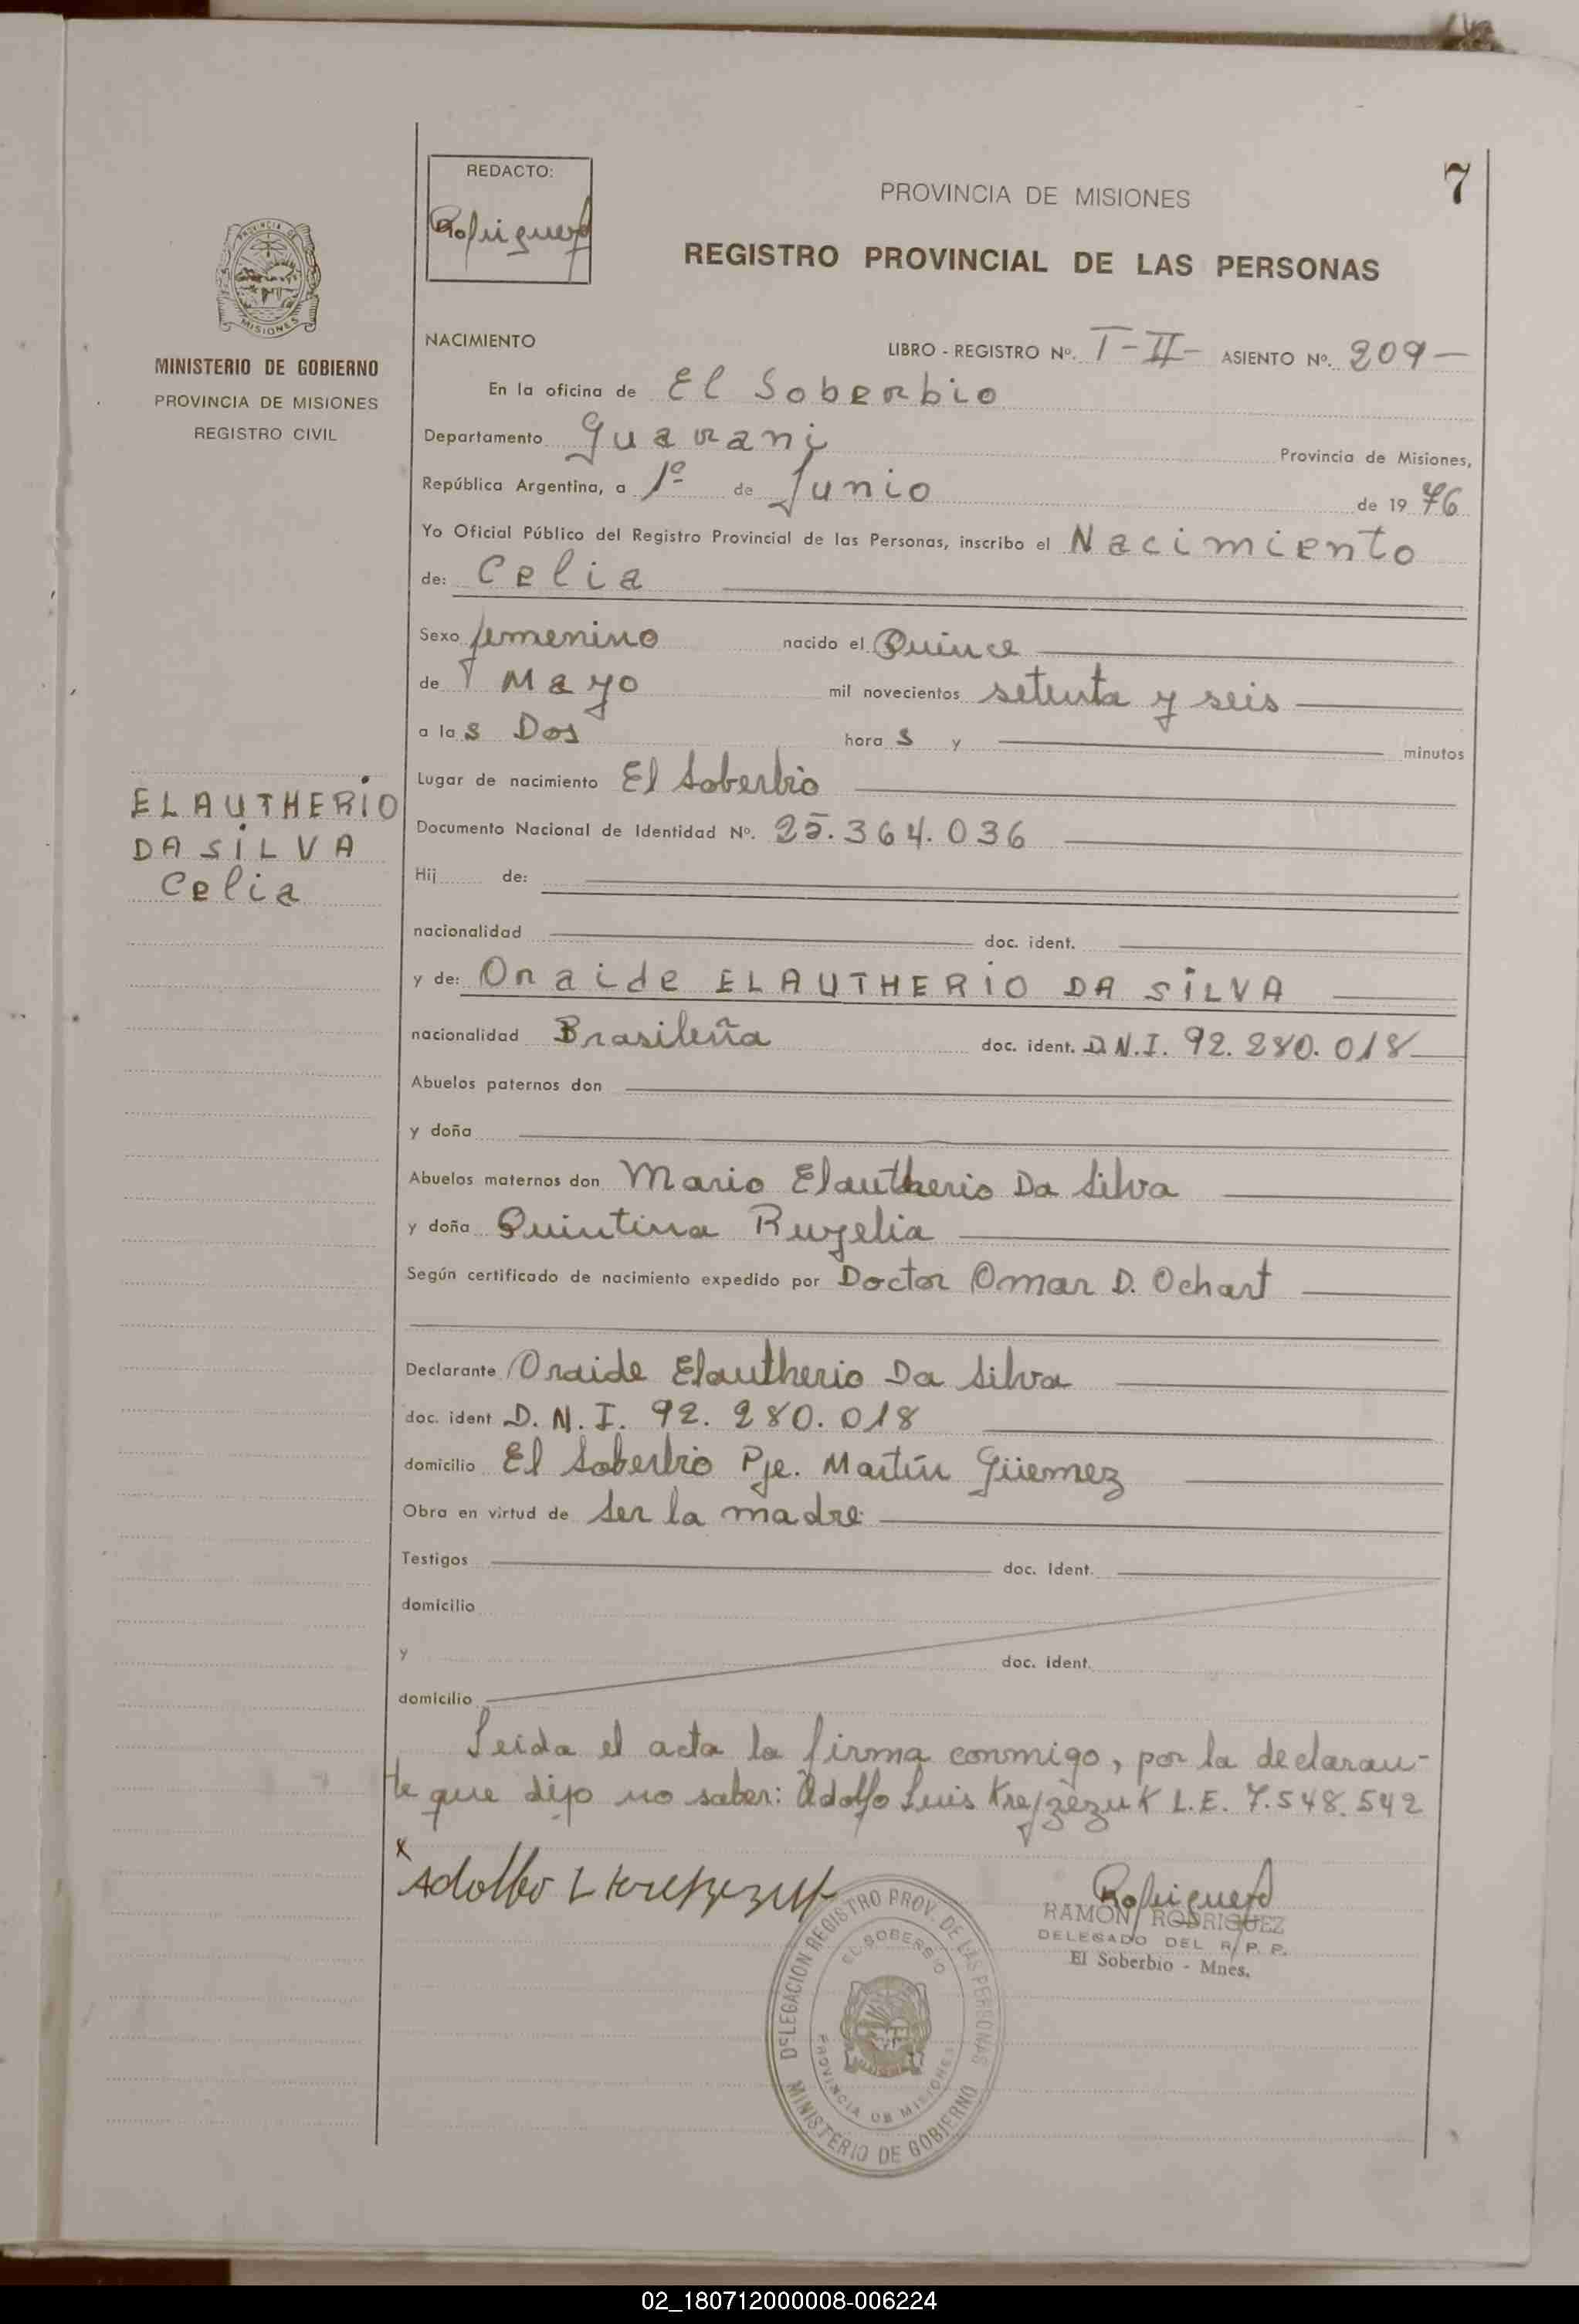 7
REDACTO:
PROVINCIA DE MISIONES
REGISTRO PROVINCIAL DE LAS PERSONAS
PROVINCIA DE
MISIONES
MINISTERIO DE GOBIERNO
PROVINCIA DE MISIONES
REGISTRO CIVIL
NACIMIENTO
LIBRO - REGISTRO Nº. T-II- ASIENTO Nº. 209-
En la oficina de El Soberbio
Departamento Guarani Provincia de Misiones,
República Argentina, a 1º de Junio de 1976
Yo Oficial Público del Registro Provincial de las Personas, inscribo el Nacimiento
de: Celia
Sexo femenino nacido el Quince
de Mayo mil novecientos setenta y seis
a las Dos horas y minutos
Lugar de nacimiento El Soberbio
Documento Nacional de Identidad Nº. 25.364.036
ELAUTHERIO
DA SILVA
Celia
Hij de:
nacionalidad doc. ident.
y de: Oraide ELAUTHERIO DA SILVA
nacionalidad Brasileña doc. ident. D.N.I. 92.280.018
Abuelos paternos don
y doña
Abuelos maternos don Mario Elautherio Da Silva
y doña Quintina
Según certificado de nacimiento expedido por Doctor Omar D. Ochart
Declarante Oraide Elautherio Da Silva
doc. ident D.N.I. 92.280.018
domicilio El Soberbio Pje. Martín Güemez
Obra en virtud de ser la madre
Testigos doc. Ident.
domicilio
y doc. ident.
domicilio
Leida el acta la firma conmigo, por la declaran-
te que dijo no saber: Adolfo Luis L.E. 7.548.542
x
Adolfo L
RAMON RODRIGUEZ
DELEGADO DEL R. P. P.
El Soberbio - Mnes.
DELEGACION REGISTRO PROV. DE LAS PERSONAS
MINISTERIO DE GOBIERNO
EL SOBERBIO
PROVINCIA DE MISIONES
02_180712000008-006224